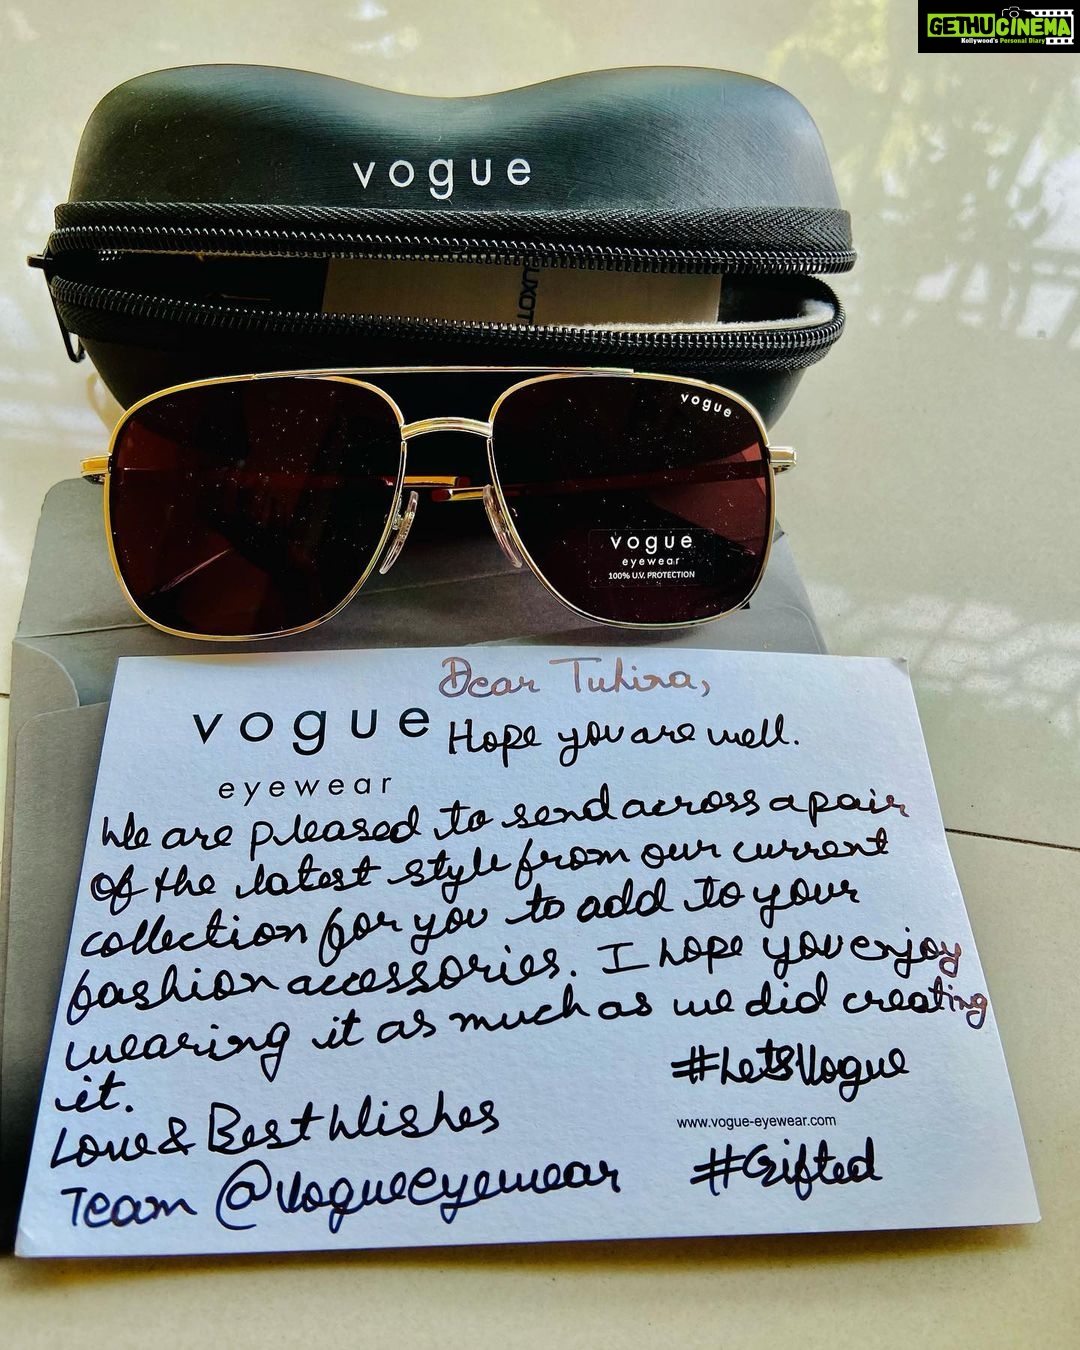 GETHUCINEMA
Kollywood's Personal Diary
vogue
LUXOT
vogue
vogue
eyewear
100% U.V. PROTECTION
Dear Tuhina,
vogue
eyewear
Hope you are well.
We are pleased to send across a pair
of the latest style from our current
collection for you to add to your
fashion accessories. I hope you enjoy
wearing it as much as we did creating
it.
#Let'sVogue
Love & Best Wishes
www.vogue-eyewear.com
Team @vogueeyewear
#Gifted